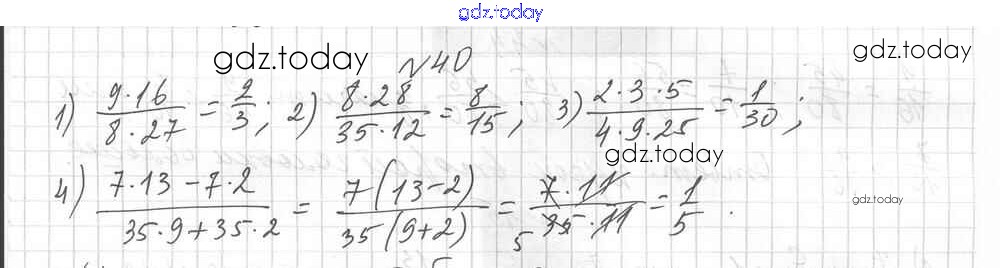 gdz.today
gdz.today №40 gdz.today
1) 9·16/8·27 = 2/3; 2) 8·28/35·12 = 8/15; 3) 2·3·5/4·9·25 = 1/30;
gdz.today
4) 7·13-7·2/35·9+35·2 = 7(13-2)/35(9+2) = 7·11/35·11 = 1/5.
5
gdz.today